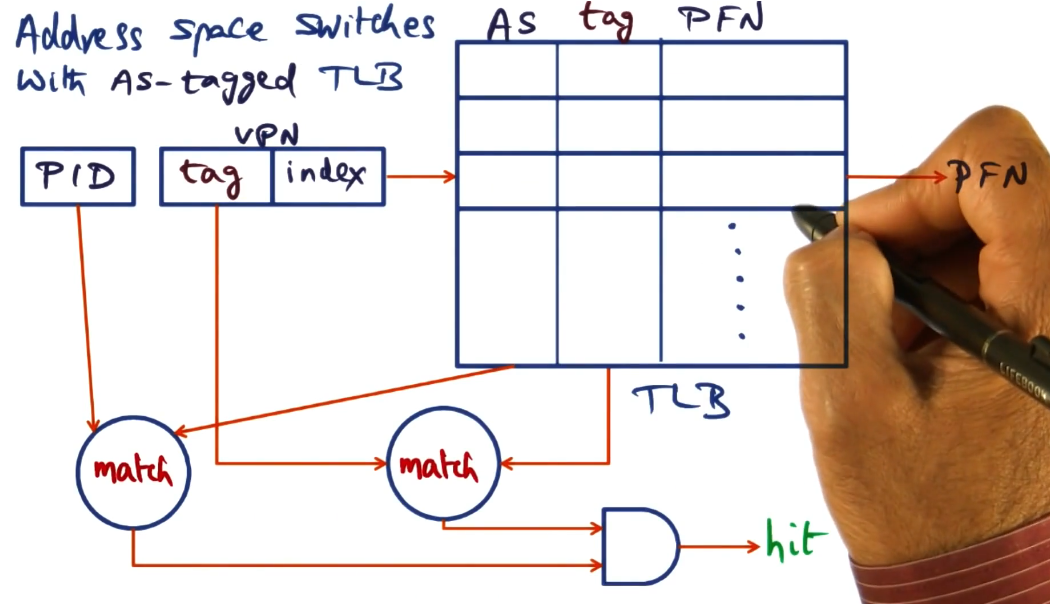 Address space switches
With AS-tagged TLB
AS tag PFN
VPN
PID
tag index
PFN
TLB
match
match
hit
LIFEBOOK